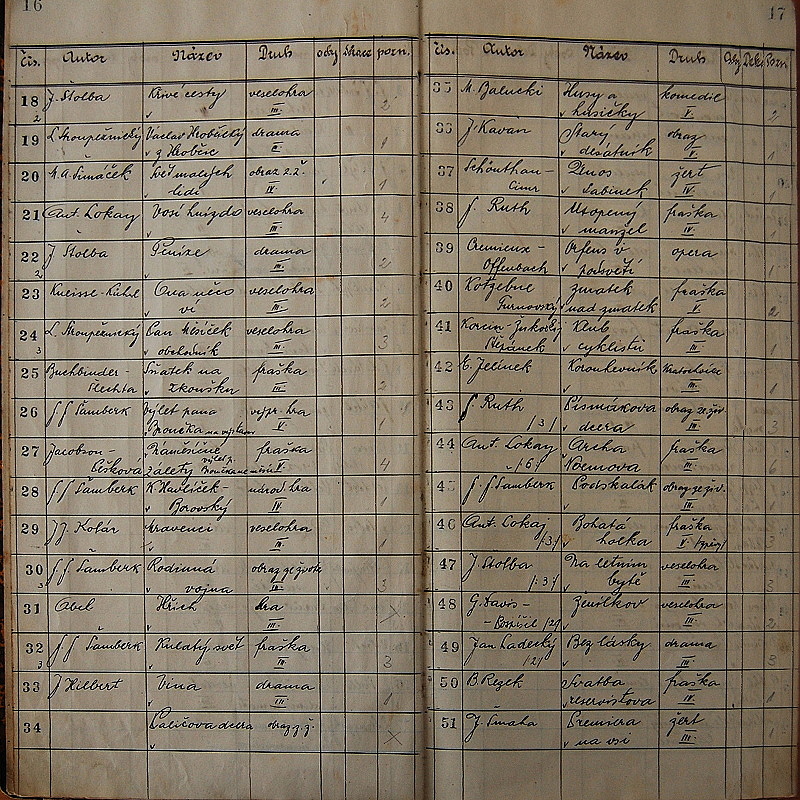 16
čís. Autor Název Druh oby. porn.
18 J. Štolba Křivé cesty veselohra III. 2
2
19 L. Stroupežnický Václav Hrobčický drama 1
z Hrobčic
20 M. A. Šimáček Svět malých obraz z ž. 1
lidí IV.
21 Ant. Lokay Vosí hnízdo veselohra III. 4
22 J. Štolba Peníze drama III. 2
2
23 Kneisel-Kühnl Ona něco veselohra III. 2
ví
24 L. Stroupežnický Pan Měsíček veselohra III. 3
3 obchodník
25 Buchbinder- Sňatek na fraška III. 2
Šlechta zkoušku
26 J. J. Šamberk Výlet pana výpr. hra V. 1
Broučka na výstavu
27 Jacobson- Náměsíčné fraška V. 4
zálety
28 J. J. Šamberk K. Havlíček národ. hra IV. 1
Borovský
29 J. J. Kolár Mravenci veselohra III. 1
30 J. J. Šamberk Rodinná obraz ze života 3
3 vojna
31 Abel Hřích hra III. X
32 J. J. Šamberk Kulatý svět fraška III. 3
3
33 J. Hilbert Vina drama III. 1
34 Paličova dcera obraz z ž. X
17
čís. Autor Název Druh
35 M. Balucki Husy a komedie V. 2
húsičky
36 J. Kaván Starý obraz V. 1
desátník
37 Schönthan- Únos žert IV. 1
Sabinek
38 J. Ruth Utopený fraška IV. 1
manžel
39 Cremieux- Orfeus v opera 1
Offenbach podsvětí
40 Kotzebue zmatek fraška V. 2
Turnovský nad zmatek
41 Klub fraška III. 1
Štěpánek cyklistů
42 E. Jelínek Korouhevník III. 1
43 J. Ruth Písmákova obraz ze živ. 3
/3/ dcera
44 Ant. Lokay Archa fraška III. 6
/6/ Noemova
45 J. J. Šamberk Podskalák obraz ze živ.
46 Ant. Lokaj Bohatá fraška V. 3
/3/ holka
47 J. Štolba Na letním veselohra III. 3
/3/ bytě
48 G. Davis- Zeviškov veselohra III. 2
- Pospíšil /2/
49 Jan Ladecký Bez lásky drama III. 3
/2/
50 B. Rezek Svatba fraška IV. 1
reservistova
51 J. Šmaha Premiera žert III. 1
na vsi